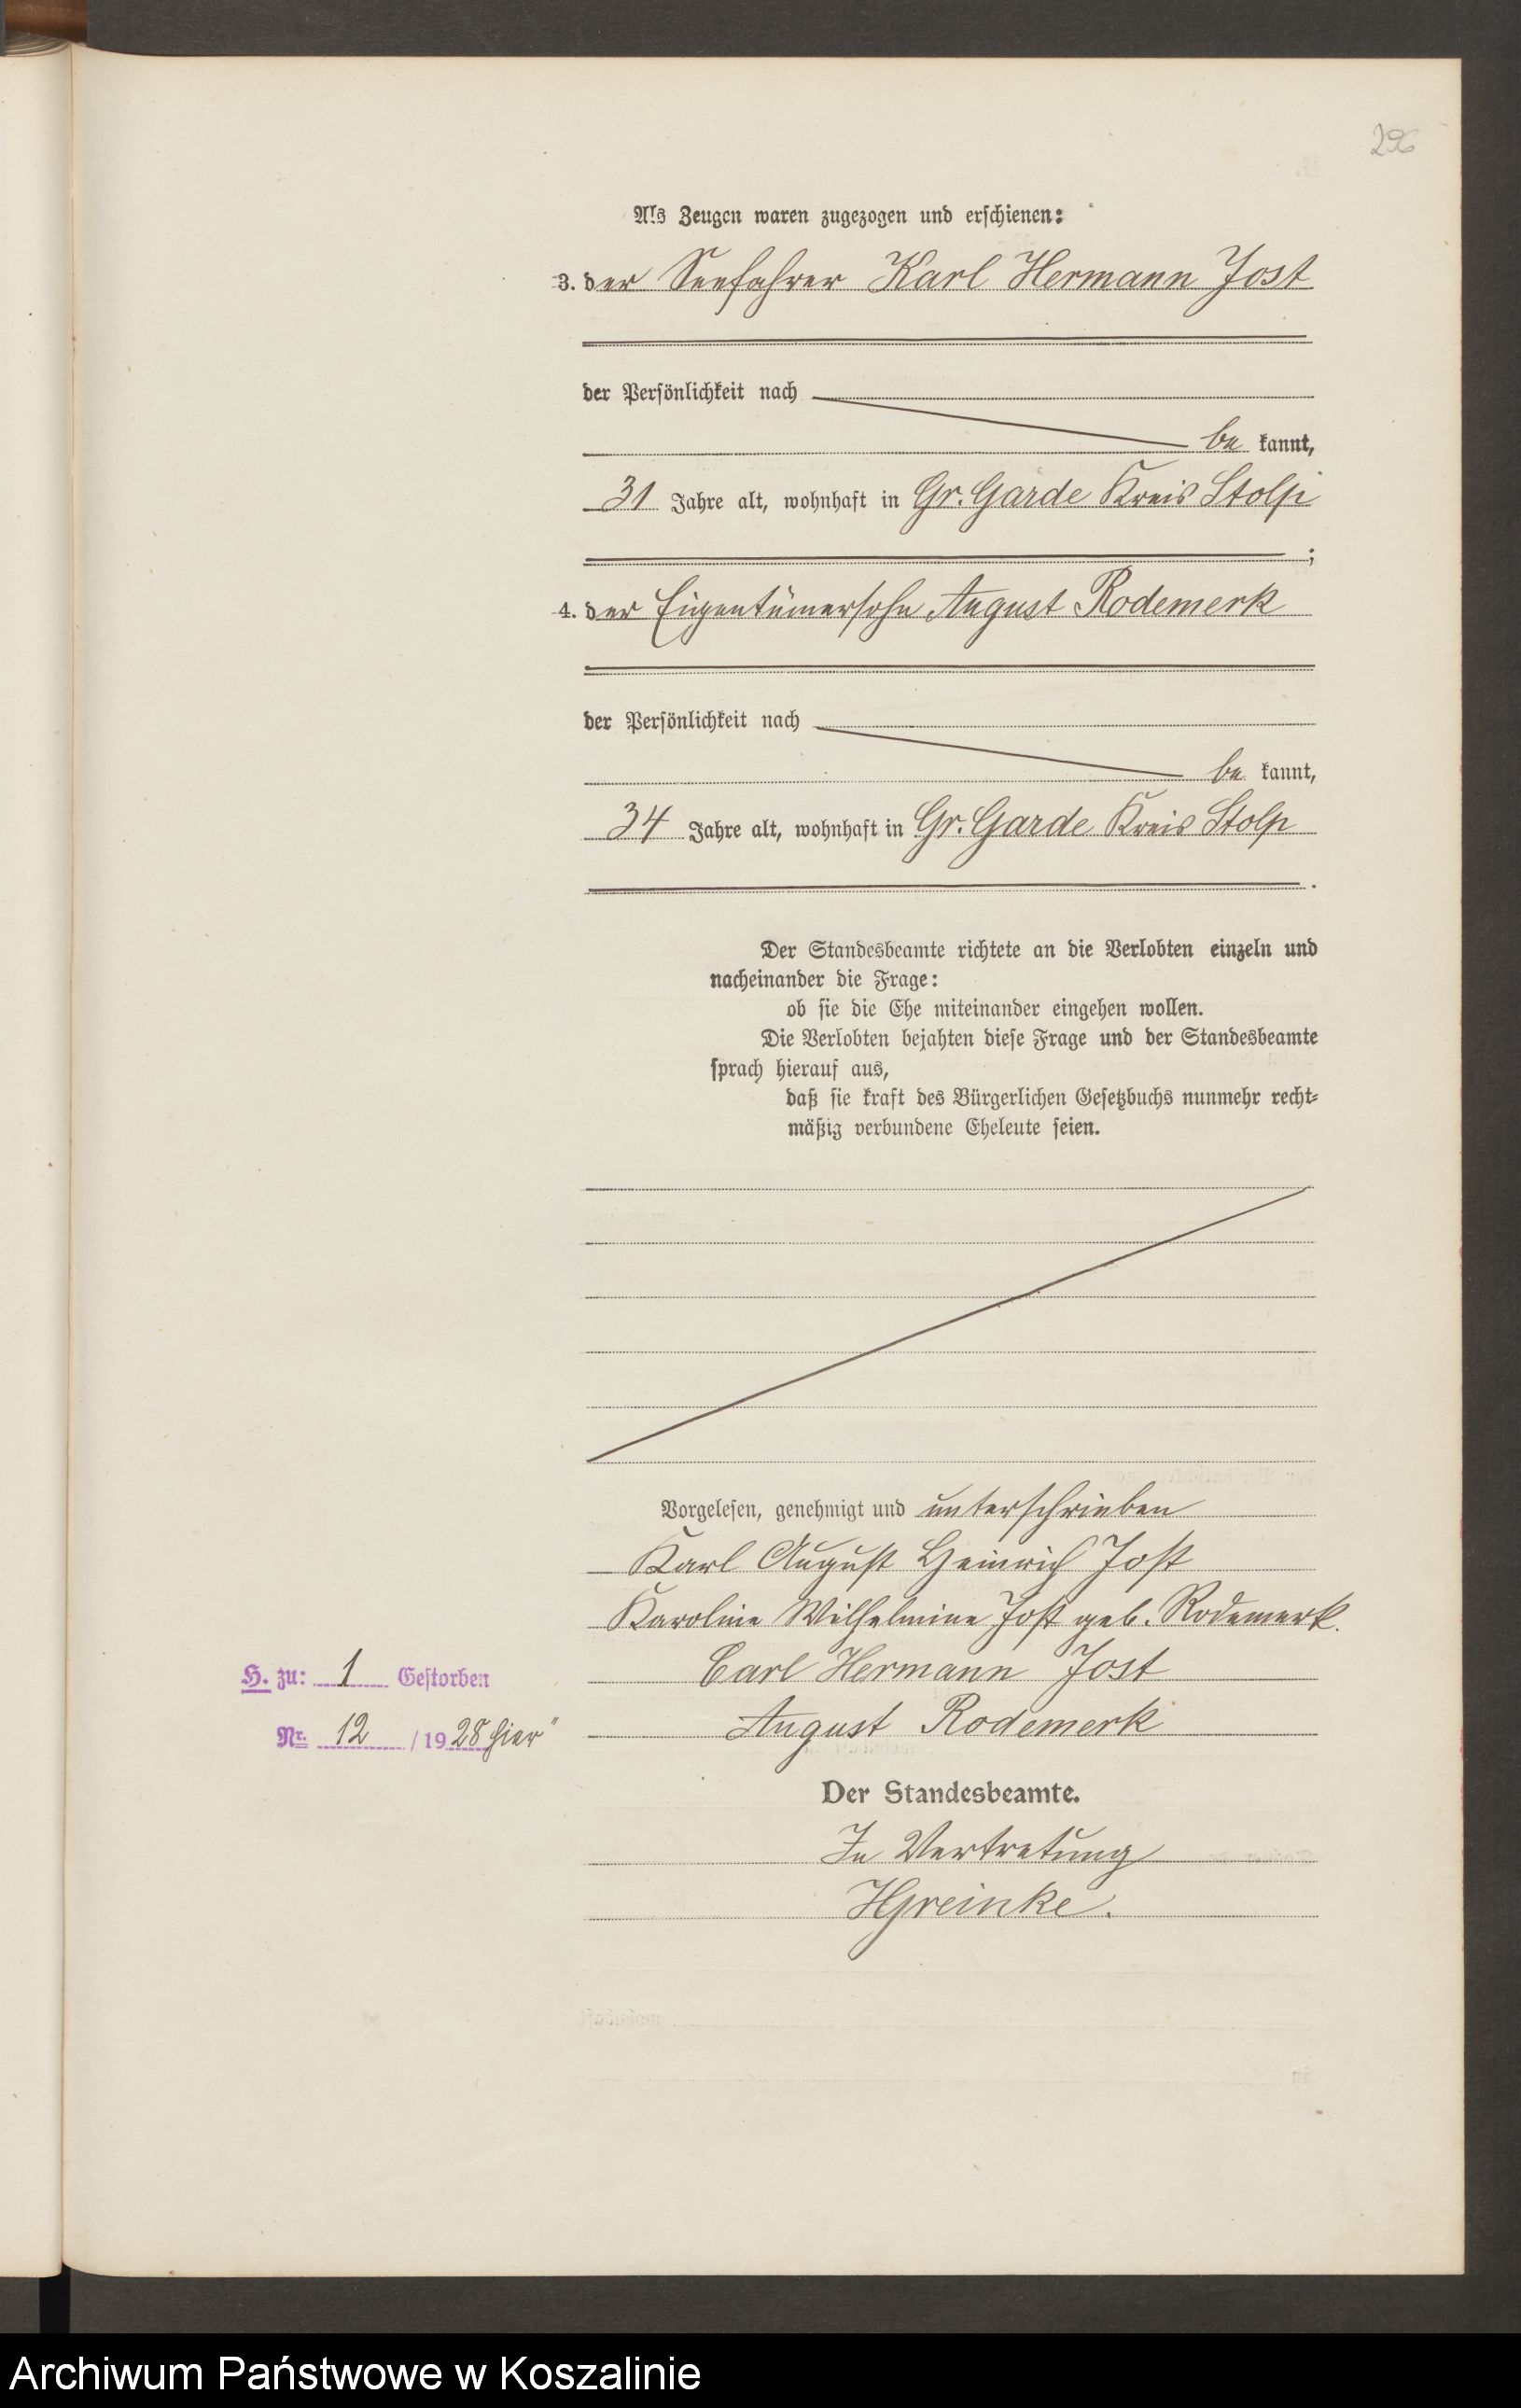 296
Als Zeugen waren zugezogen und erschienen:
3. der Seefahrer Karl Hermann Jost
der Persönlichkeit nach
be kannt,
31 Jahre alt, wohnhaft in Gr. Garde Kreis Stolp
;
4. der Eigentümersohn August Rodemerk
der Persönlichkeit nach
be kannt,
34 Jahre alt, wohnhaft in Gr. Garde Kreis Stolp
.
Der Standesbeamte richtete an die Verlobten einzeln und
nacheinander die Frage:
ob sie die Ehe miteinander eingehen wollen.
Die Verlobten bejahten diese Frage und der Standesbeamte
sprach hierauf aus,
daß sie kraft des Bürgerlichen Gesetzbuchs nunmehr recht-
mäßig verbundene Eheleute seien.
Vorgelesen, genehmigt und unterschrieben
Karl August Heinrich Jost
Karoline Wilhelmine Jost geb. Rodemerk.
Carl Hermann Jost
H. zu: 1 Gestorben
August Rodemerk
Nr. 12 / 19 28 hier"
Der Standesbeamte.
In Vertretung
HGreinke.
Archiwum Państwowe w Koszalinie